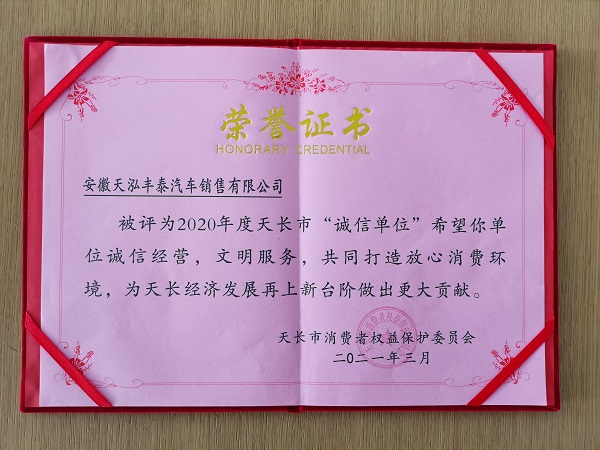 荣誉证书
HONORARY CREDENTIAL
安徽天泓丰泰汽车销售有限公司
被评为2020年度天长市“诚信单位”希望你单
位诚信经营，文明服务，共同打造放心消费环
境，为天长经济发展再上新台阶做出更大贡献。
天长市消费者权益保护委员会
二〇二一年三月